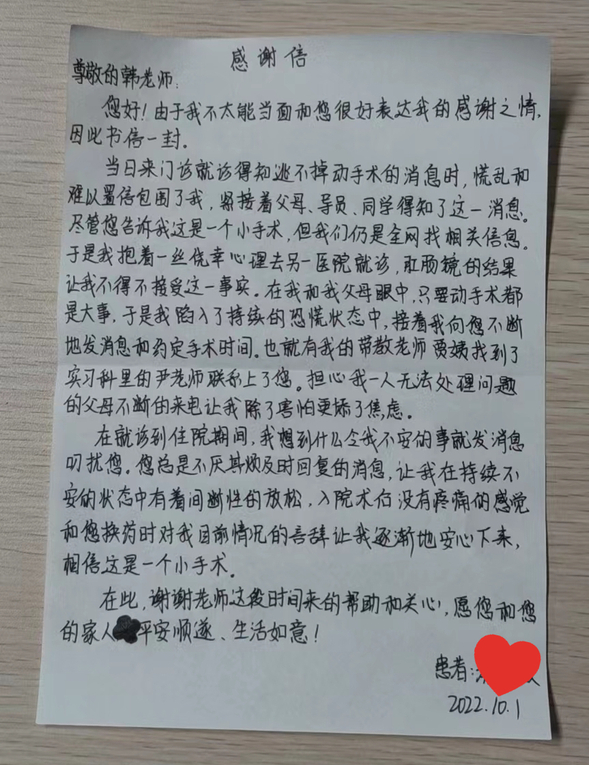 感谢信
尊敬的韩老师:
您好!由于我不太能当面和您很好表达我的感谢之情,
因此书信一封。
当日来门诊就诊得知逃不掉动手术的消息时,慌乱和
难以置信包围了我,紧接着父母、导员、同学得知了这一消息。
尽管您告诉我这是一个小手术,但我们仍是全网找相关信息。
于是我抱着一丝侥幸心理去另一医院就诊,肛肠镜的结果
让我不得不接受这一事实。在我和我父母眼中,只要动手术都
是大事,于是我陷入了持续的恐慌状态中,接着我向您不断
地发消息和约定手术时间。也就有我的带教老师贾姨找到了
实习科里的尹老师联系上了您。担心我一人无法处理问题
的父母不断的来电让我除了害怕更添了焦虑。
在就诊到住院期间,我想到什么令我不安的事就发消息
叨扰您。您总是不厌其烦及时回复的消息,让我在持续不
安的状态中有着间断性的放松,入院术后没有疼痛的感觉
和您换药时对我目前情况的言辞让我逐渐地安心下来,
相信这是一个小手术。
在此,谢谢老师这段时间来的帮助和关心,愿您和您
的家人平安顺遂、生活如意!
患者:
2022.10.1